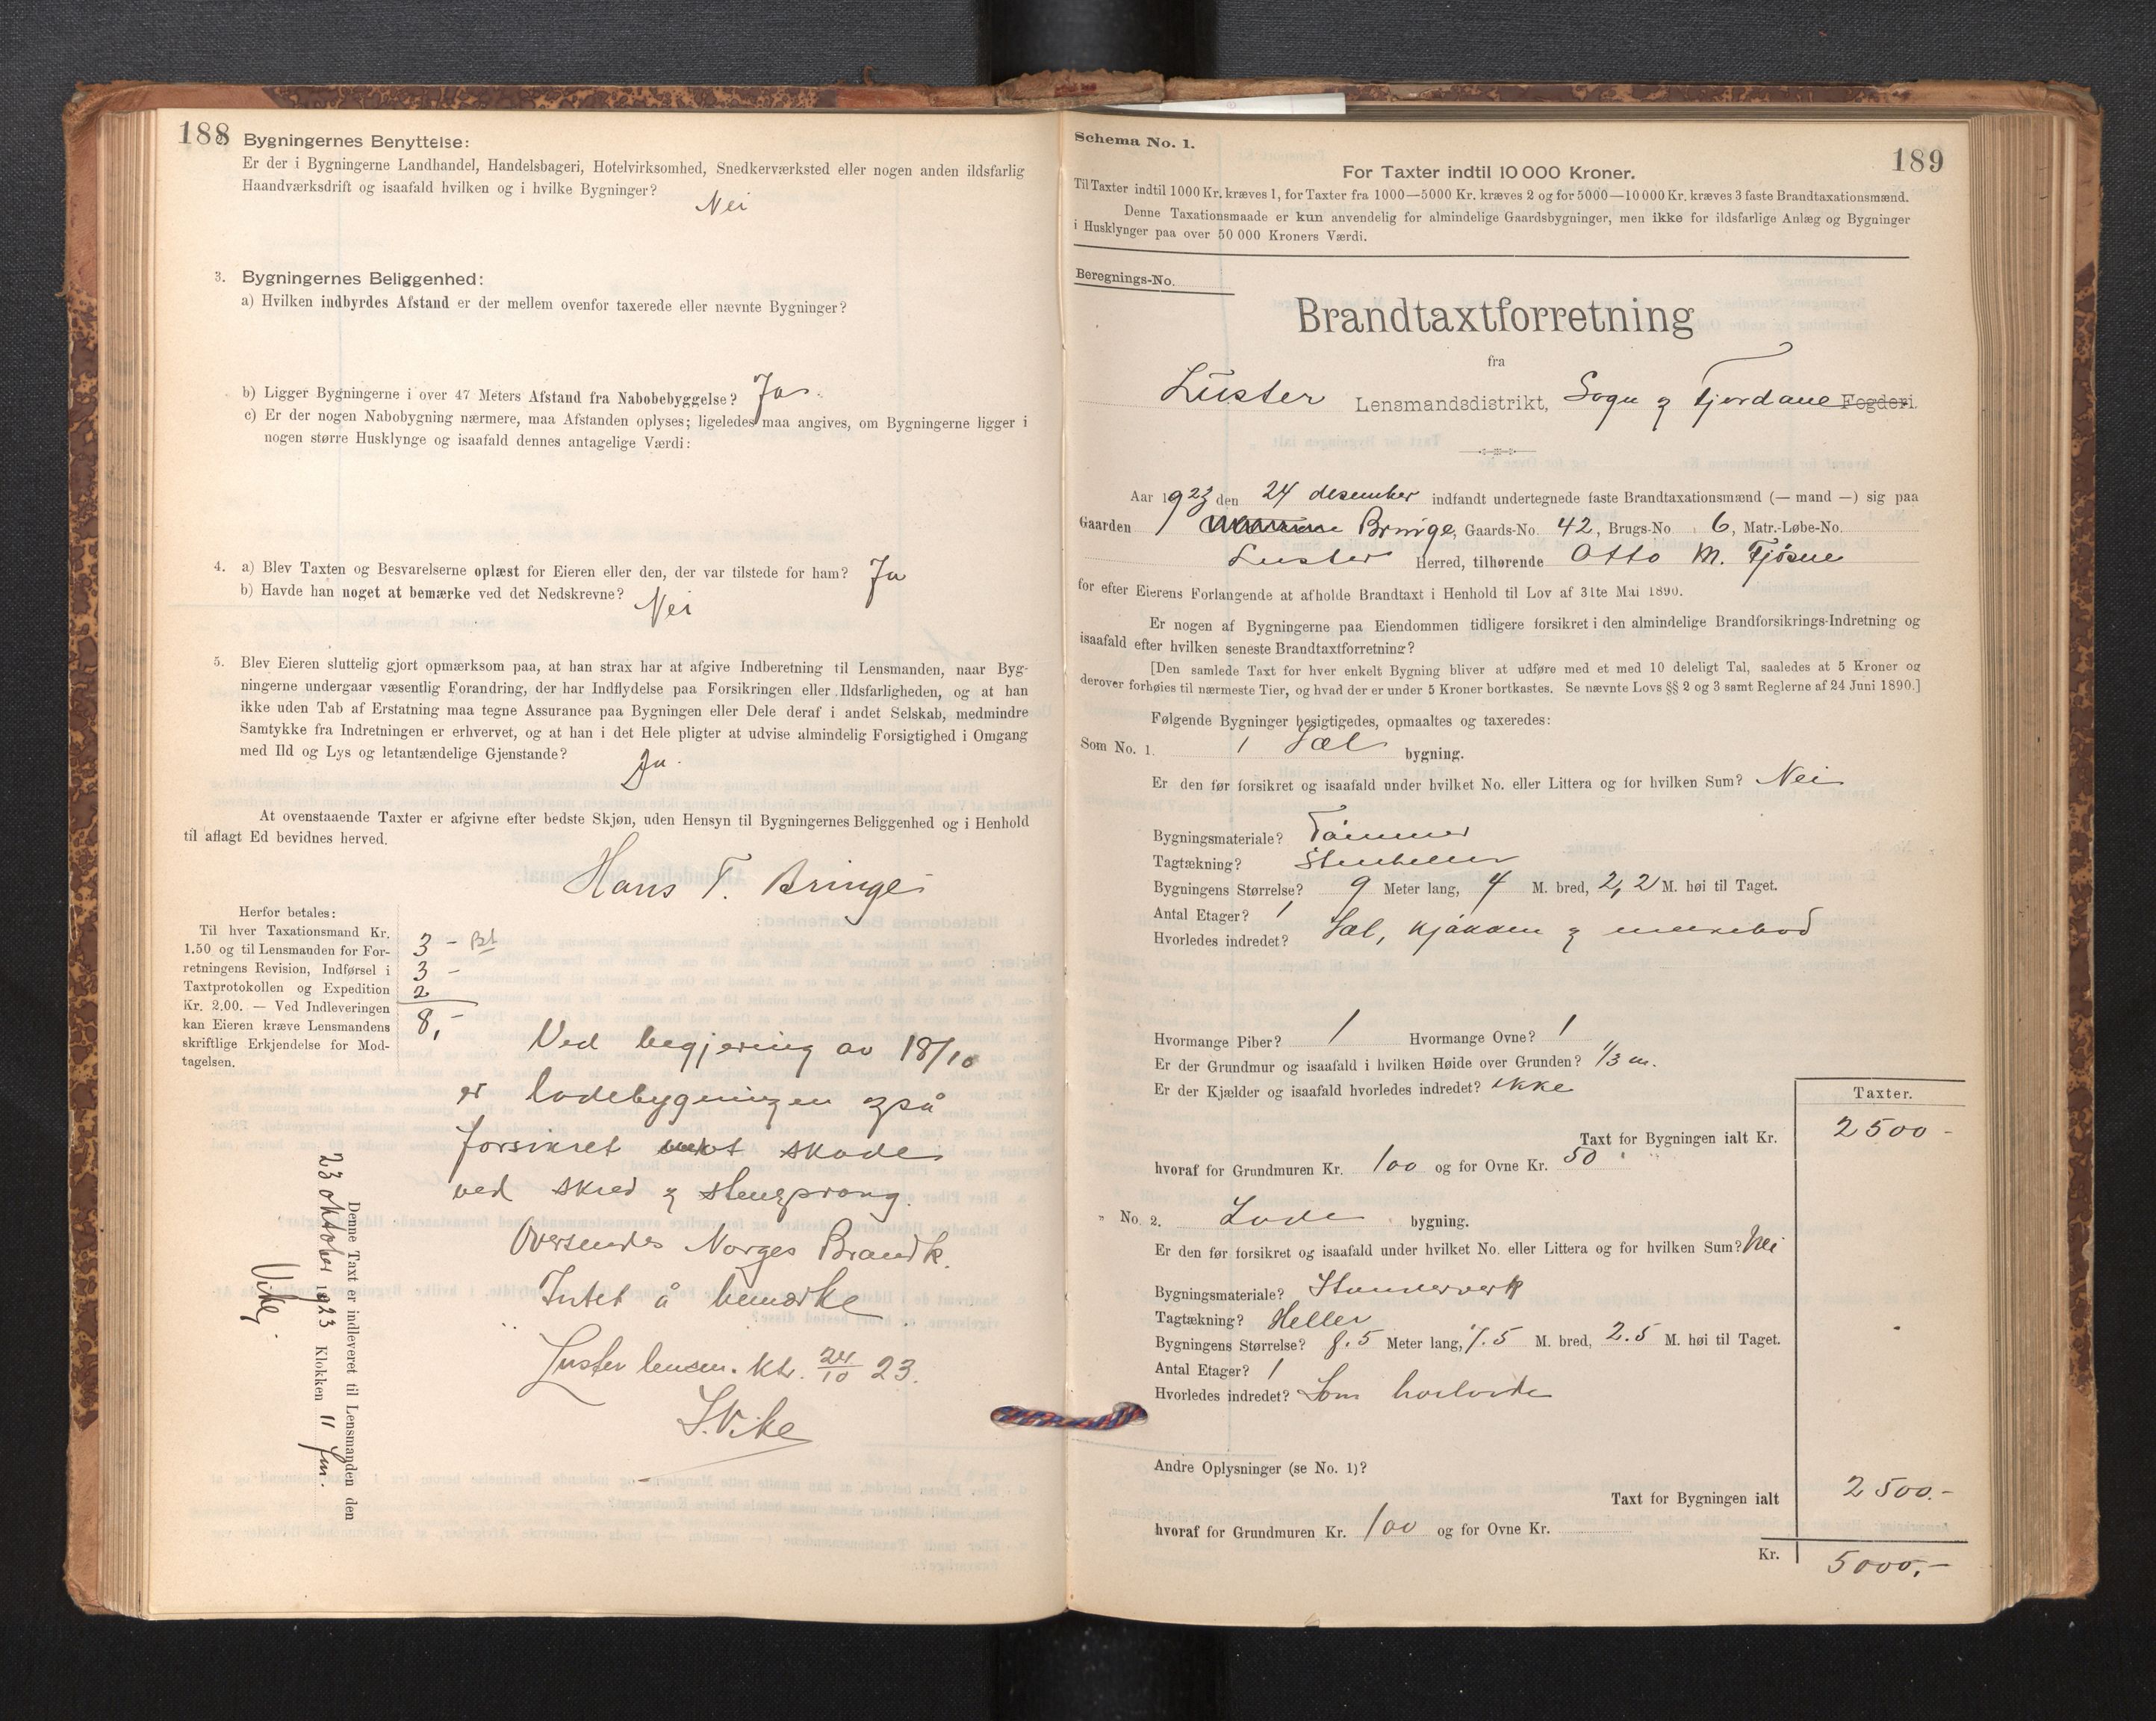 188
2. Bygningernes Benyttelse:
Er der i Bygningerne Landhandel, Handelsbageri, Hotelvirksomhed, Snedkerværksted eller nogen anden ildsfarlig
Haandværksdrift og isaafald hvilken og i hvilke Bygninger?
Nei
3. Bygningernes Beliggenhed:
a) Hvilken indbyrdes Afstand er der mellem ovenfor taxerede eller nævnte Bygninger?
b) Ligger Bygningerne i over 47 Meters Afstand fra Nabobebyggelse? Ja.
c) Er der nogen Nabobygning nærmere, maa Afstanden oplyses; ligeledes maa angives, om Bygningerne ligger i
nogen større Husklynge og isaafald dennes antagelige Værdi:
4. a) Blev Taxten og Besvarelserne oplæst for Eieren eller den, der var tilstede for ham? Ja
b) Havde han noget at bemærke ved det Nedskrevne? Nei
5. Blev Eieren sluttelig gjort opmærksom paa, at han strax har at afgive Indberetning til Lensmanden, naar Byg-
ningerne undergaar væsentlig Forandring, der har Indflydelse paa Forsikringen eller Ildsfarligheden, og at han
ikke uden Tab af Erstatning maa tegne Assurance paa Bygningen eller Dele deraf i andet Selskab, medmindre
Samtykke fra Indretningen er erhvervet, og at han i det Hele pligter at udvise almindelig Forsigtighed i Omgang
med Ild og Lys og letantændelige Gjenstande? Ja.
At ovenstaaende Taxter er afgivne efter bedste Skjøn, uden Hensyn til Bygningernes Beliggenhed og i Henhold
til aflagt Ed bevidnes herved.
Hans T. Bringe
Herfor betales:
Til hver Taxationsmand Kr.
1.50 og til Lensmanden for For-
retningens Revision, Indførsel i
Taxtprotokollen og Expedition
Kr. 2.00. — Ved Indleveringen
kan Eieren kræve Lensmandens
skriftlige Erkjendelse for Mod-
tagelsen.
3 - Bet
3 -
2
8,-
Ved begjæring av 18/10
er lødebygningen også
forsikret mot skade
ved skred og stensprang.
Oversendes Norges Brandk.
Intet å bemerke
Luster lensm. ktr. 24/10 23.
S. Vike
Denne Taxt er indleveret til Lensmanden den
23 oktober 1923 Klokken 11 fm.
Vike
Schema No. 1.
189
For Taxter indtil 10 000 Kroner.
Til Taxter indtil 1000 Kr. kræves 1, for Taxter fra 1000—5000 Kr. kræves 2 og for 5000—10 000 Kr. kræves 3 faste Brandtaxationsmænd.
Denne Taxationsmaade er kun anvendelig for almindelige Gaardsbygninger, men ikke for ildsfarlige Anlæg og Bygninger
i Husklynger paa over 50 000 Kroners Værdi.
Beregnings-No.
Brandtaxtforretning
fra
Luster Lensmandsdistrikt, Sogn og Fjordane Fogderi.
Aar 1923 den 24 desember indfandt undertegnede faste Brandtaxationsmænd (— mand —) sig paa
Gaarden Bringe, Gaards-No. 42, Brugs-No. 6, Matr.-Løbe-No.
Luster Herred, tilhørende Otto M. Fjøsne
for efter Eierens Forlangende at afholde Brandtaxt i Henhold til Lov af 31te Mai 1890.
Er nogen af Bygningerne paa Eiendommen tidligere forsikret i den almindelige Brandforsikrings-Indretning og
isaafald efter hvilken seneste Brandtaxtforretning?
[Den samlede Taxt for hver enkelt Bygning bliver at udføre med et med 10 deleligt Tal, saaledes at 5 Kroner og
derover forhøies til nærmeste Tier, og hvad der er under 5 Kroner bortkastes. Se nævnte Lovs §§ 2 og 3 samt Reglerne af 24 Juni 1890.]
Følgende Bygninger besigtigedes, opmaaltes og taxeredes:
Som No. 1. 1 Sæl bygning.
Er den før forsikret og isaafald under hvilket No. eller Littera og for hvilken Sum? Nei
Bygningsmateriale? Tømmer
Tagtækning? Stenheller
Bygningens Størrelse? 9 Meter lang, 4 M. bred, 2,2 M. høi til Taget.
Antal Etager? 1
Hvorledes indredet? Sæl, kjøkken og melkebod
Hvormange Piber? 1 Hvormange Ovne? 1
Er der Grundmur og isaafald i hvilken Høide over Grunden? 1/3 m.
Er der Kjælder og isaafald hvorledes indredet? ikke
Taxter.
Taxt for Bygningen ialt Kr. 2500 -
hvoraf for Grundmuren Kr. 100 og for Ovne Kr. 50
" No. 2. Løde bygning.
Er den før forsikret og isaafald under hvilket No. eller Littera og for hvilken Sum? Nei
Bygningsmateriale? Stenderverk
Tagtækning? Heller
Bygningens Størrelse? 8.5 Meter lang, 7.5 M. bred, 2.5 M. høi til Taget.
Antal Etager? 1
Hvorledes indredet? Som høiløde
Andre Oplysninger (se No. 1)?
Taxt for Bygningen ialt 2500.-
hvoraf for Grundmuren Kr. 100 og for Ovne Kr.
Kr. 5000.-